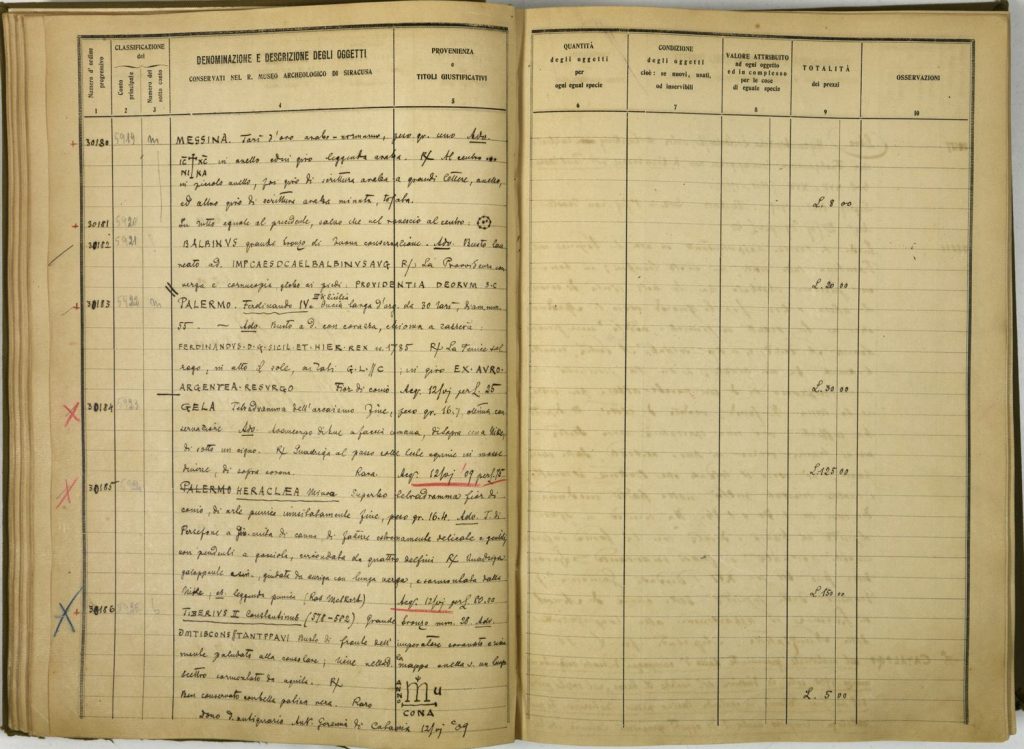 CLASSIFICAZIONE
del
Numero d' ordine progressivo
Conto principale
Numero del sotto conto
DENOMINAZIONE E DESCRIZIONE DEGLI OGGETTI
CONSERVATI NEL R. MUSEO ARCHEOLOGICO DI SIRACUSA
PROVENIENZA
e
TITOLI GIUSTIFICATIVI
QUANTITÀ
degli oggetti
per
ogni egual specie
CONDIZIONE
degli oggetti
cioè: se nuovi, usati,
od inservibili
VALORE ATTRIBUITO
ad ogni oggetto
ed in complesso
per le cose
di eguale specie
TOTALITÀ
dei prezzi
OSSERVAZIONI
1 2 3 4 5 6 7 8 9 10
30180 5919 m MESSINA. Tarì d'oro arabo-normanno, peso gr. uno Adv.
IC XC in anello ed in giro leggenda araba. R/ Al centro
NI KA
in piccolo anello, poi giro di scrittura araba a grandi lettere, anello,
ed altro giro di scrittura araba minuta,
L. 8 00
30181 5920 In tutto eguale al precedente, salvo che nel rovescio al centro:
30182 5921 BALBINVS grande bronzo di buona conservazione. Adv. Busto lau
reato a d. IMPCAESDCAELBALBINVSAVG R/: La Provvidenza con
verga e cornucopia, globo ai piedi: PROVIDENTIA DEORVM S.C
L. 20 00
30183 5922 m PALERMO. Ferdinando IV e III di Sicilia oncia lunga d'arg. da 30 tarì, diam. mm.
55. — Adv. Busto a d. con corazza, chioma a
FERDINANDVS·D·G·SICIL·ET·HIER·REX 1785 R/ La Fenice sul
rogo, in alto il sole, ai lati G.L // C ; in giro EX·AVRO·
ARGENTEA·RESVRGO Fior di conio Acq. 12/VI per L. 25
L. 30 00
30184 5923 GELA Tetradramma dell'arcaismo fine, peso gr. 16.7 ottima con
servazione Adv. Avancorpo di bue a faccia umana, di sopra una Nike,
di sotto un cigno. R/ Quadriga al passo colle teste equine in
di sopra corona. Rara. Acq. 12/VI '09 per L. 75
L. 125 00
30185 PALERMO HERACLÆA Minoa Superbo tetradramma fior di
conio, di arte punica fine, peso gr. 16.4. Adv. T. di
Persefone a cinta di canne, di fattezze estremamente delicate e gentili,
con pendenti a gocciola, circondata da quattro delfini R/ Quadriga
galoppante a sin., guidata da auriga con lunga verga, e sormontata dalla
Nike; es. leggenda punica (Ras Melkart) Acq. 12/VI per L 80.00
L. 150 00
30186 TIBERIUS II Constantinus (578-582) Grande bronzo mm. 38. Adv.
DMTIBCONS//TANTPPAVI Busto di fronte dell' imperatore coronato e
mente paludato alla consolare; tiene nella d. la mappa nella s. un lungo
scettro sormontato da aquila. R/
ANNO m U
CONA
Ben conservato con bella patina nera. Raro
L. 5 00
Dono d. antiquario Ant. di Catania 12/VI 09